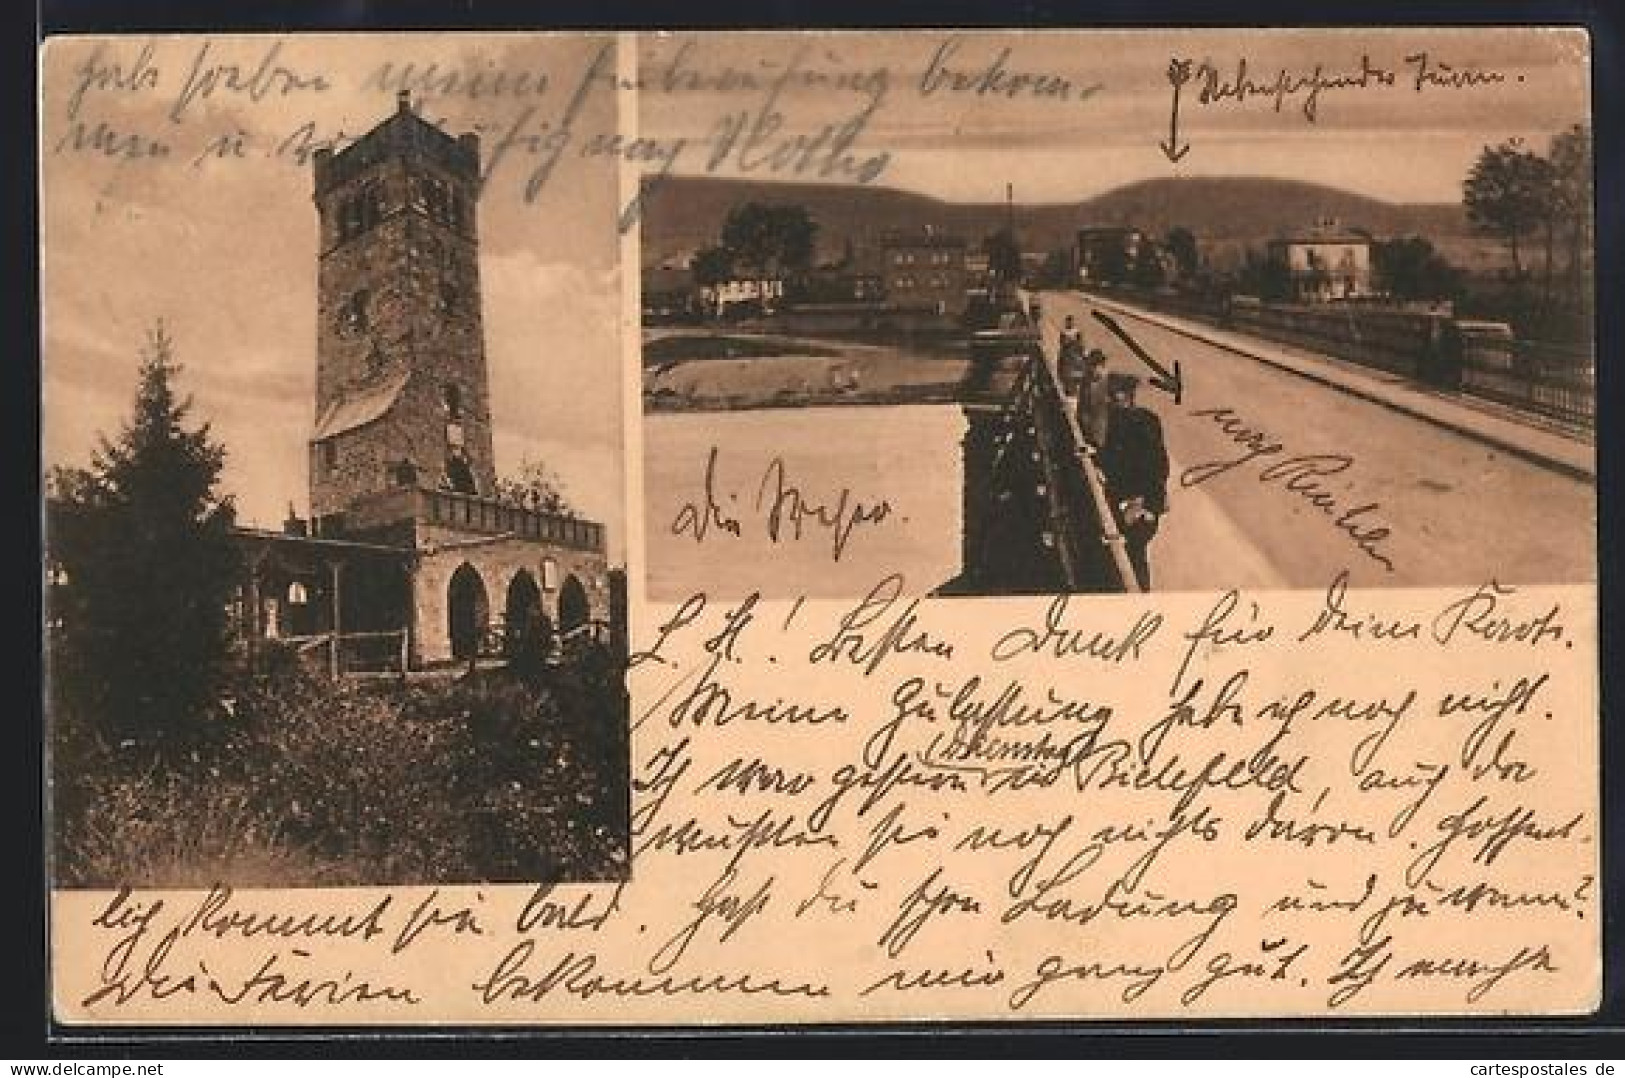 habe soeben meine Einberufung bekom-
men u. nach Vlotho
Nebenstehender Turm.
Die Weser.
nach
L. H.! Besten Dank für Deine Karte.
Meine Zulassung habe ich noch nicht.
Ich war gestern in Bielefeld, auch da
wußten sie noch nichts davon. Hoffent-
lich kommt sie bald. Hast Du schon Ladung und zu wann?
Die Ferien bekommen mir ganz gut. Ich mache
www.cartespostales.de